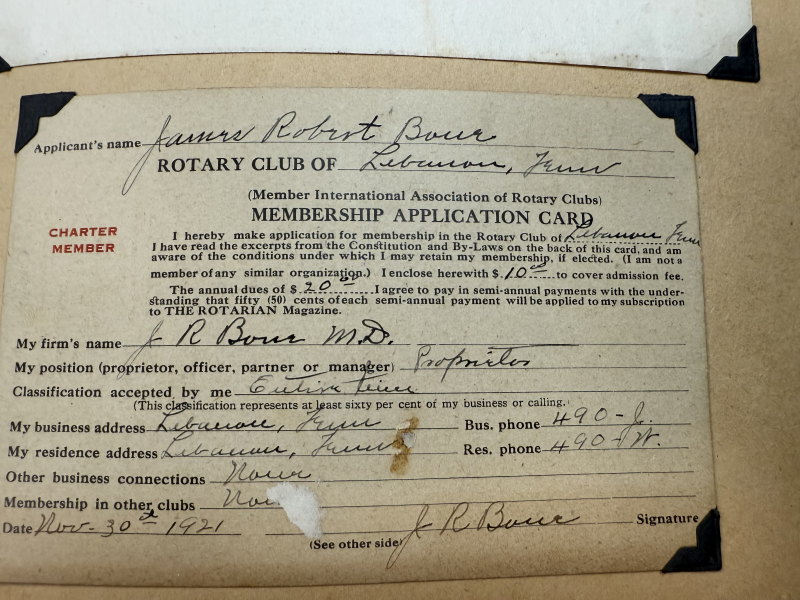 Applicant's name James Robert Bone
ROTARY CLUB OF Lebanon, Tenn
(Member International Association of Rotary Clubs)
MEMBERSHIP APPLICATION CARD
CHARTER
MEMBER
I hereby make application for membership in the Rotary Club of Lebanon Tenn
I have read the excerpts from the Constitution and By-Laws on the back of this card, and am
aware of the conditions under which I may retain my membership, if elected. (I am not a
member of any similar organization.) I enclose herewith $ 10.00 to cover admission fee.
The annual dues of $ 20.00 I agree to pay in semi-annual payments with the under-
standing that fifty (50) cents of each semi-annual payment will be applied to my subscription
to THE ROTARIAN Magazine.
My firm's name J R Bone M.D.
My position (proprietor, officer, partner or manager) Proprietor
Classification accepted by me Entire time
(This classification represents at least sixty per cent of my business or calling.)
My business address Lebanon, Tenn Bus. phone 490-J.
My residence address Lebanon, Tenn Res. phone 490-W.
Other business connections None
Membership in other clubs
Date Nov-30th 1921 J R Bone Signature
(See other side)